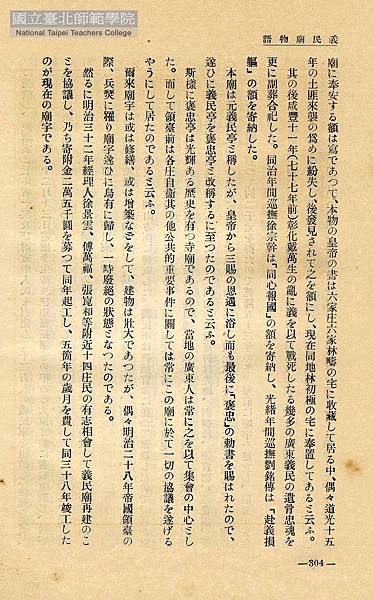 國立臺北師範學院
National Taipei Teachers College
義民廟物語
廟に奉安する額は寫であつて、本物の皇帝の書は六家庄六家林疇の宅に收藏して居る中、偶々道光十五
年の土匪來襲の爲めに紛失し、後發見されて之を額にし、現在同地林初極の宅に奉置してあると云ふ。
其の後咸豐十一年(七十七年前)彰化戴萬生の亂に義を以て戰死したる幾多の廣東義民の遺骨忠魂を
更に副葬合祀した。同治年間巡撫徐宗幹は「同心報國」の額を寄納し、光緒年間巡撫劉銘傳は「赴義損
軀」の額を寄納した。
本廟は元義民亭と稱したが、皇帝から三賜の恩遇に浴し而も最後に「褒忠」の勅書を賜はれたので、
遂ひに義民亭を褒忠亭と改稱するに至つたのであると云ふ。
斯樣に褒忠亭は光輝ある歷史を有つ寺廟であるので、當地の廣東人は常に之を以て集會の中心とし
た。而して領臺前は各庄自衞其の他公共的重要事件に關しては常にこの廟に於て一切の協議を遂げる
やうにして居たのであると云ふ。
爾來廟宇は或は修繕、或は增築などをして、建物は壯大であつたが、偶々明治二十八年帝國領臺の
際、兵燹に罹り廟宇遂ひに烏有に歸し、一時廢絕の狀態となつたのである。
然るに明治三十二年經理人徐景雲、傅萬福、張崑和等附近十四庄民の有志相會して義民廟再建のこ
とを協議し、乃ち寄附金二萬五千圓を募つて同年起工し、五箇年の歲月を費して同三十八年竣工した
のが現在の廟宇である。
—304—